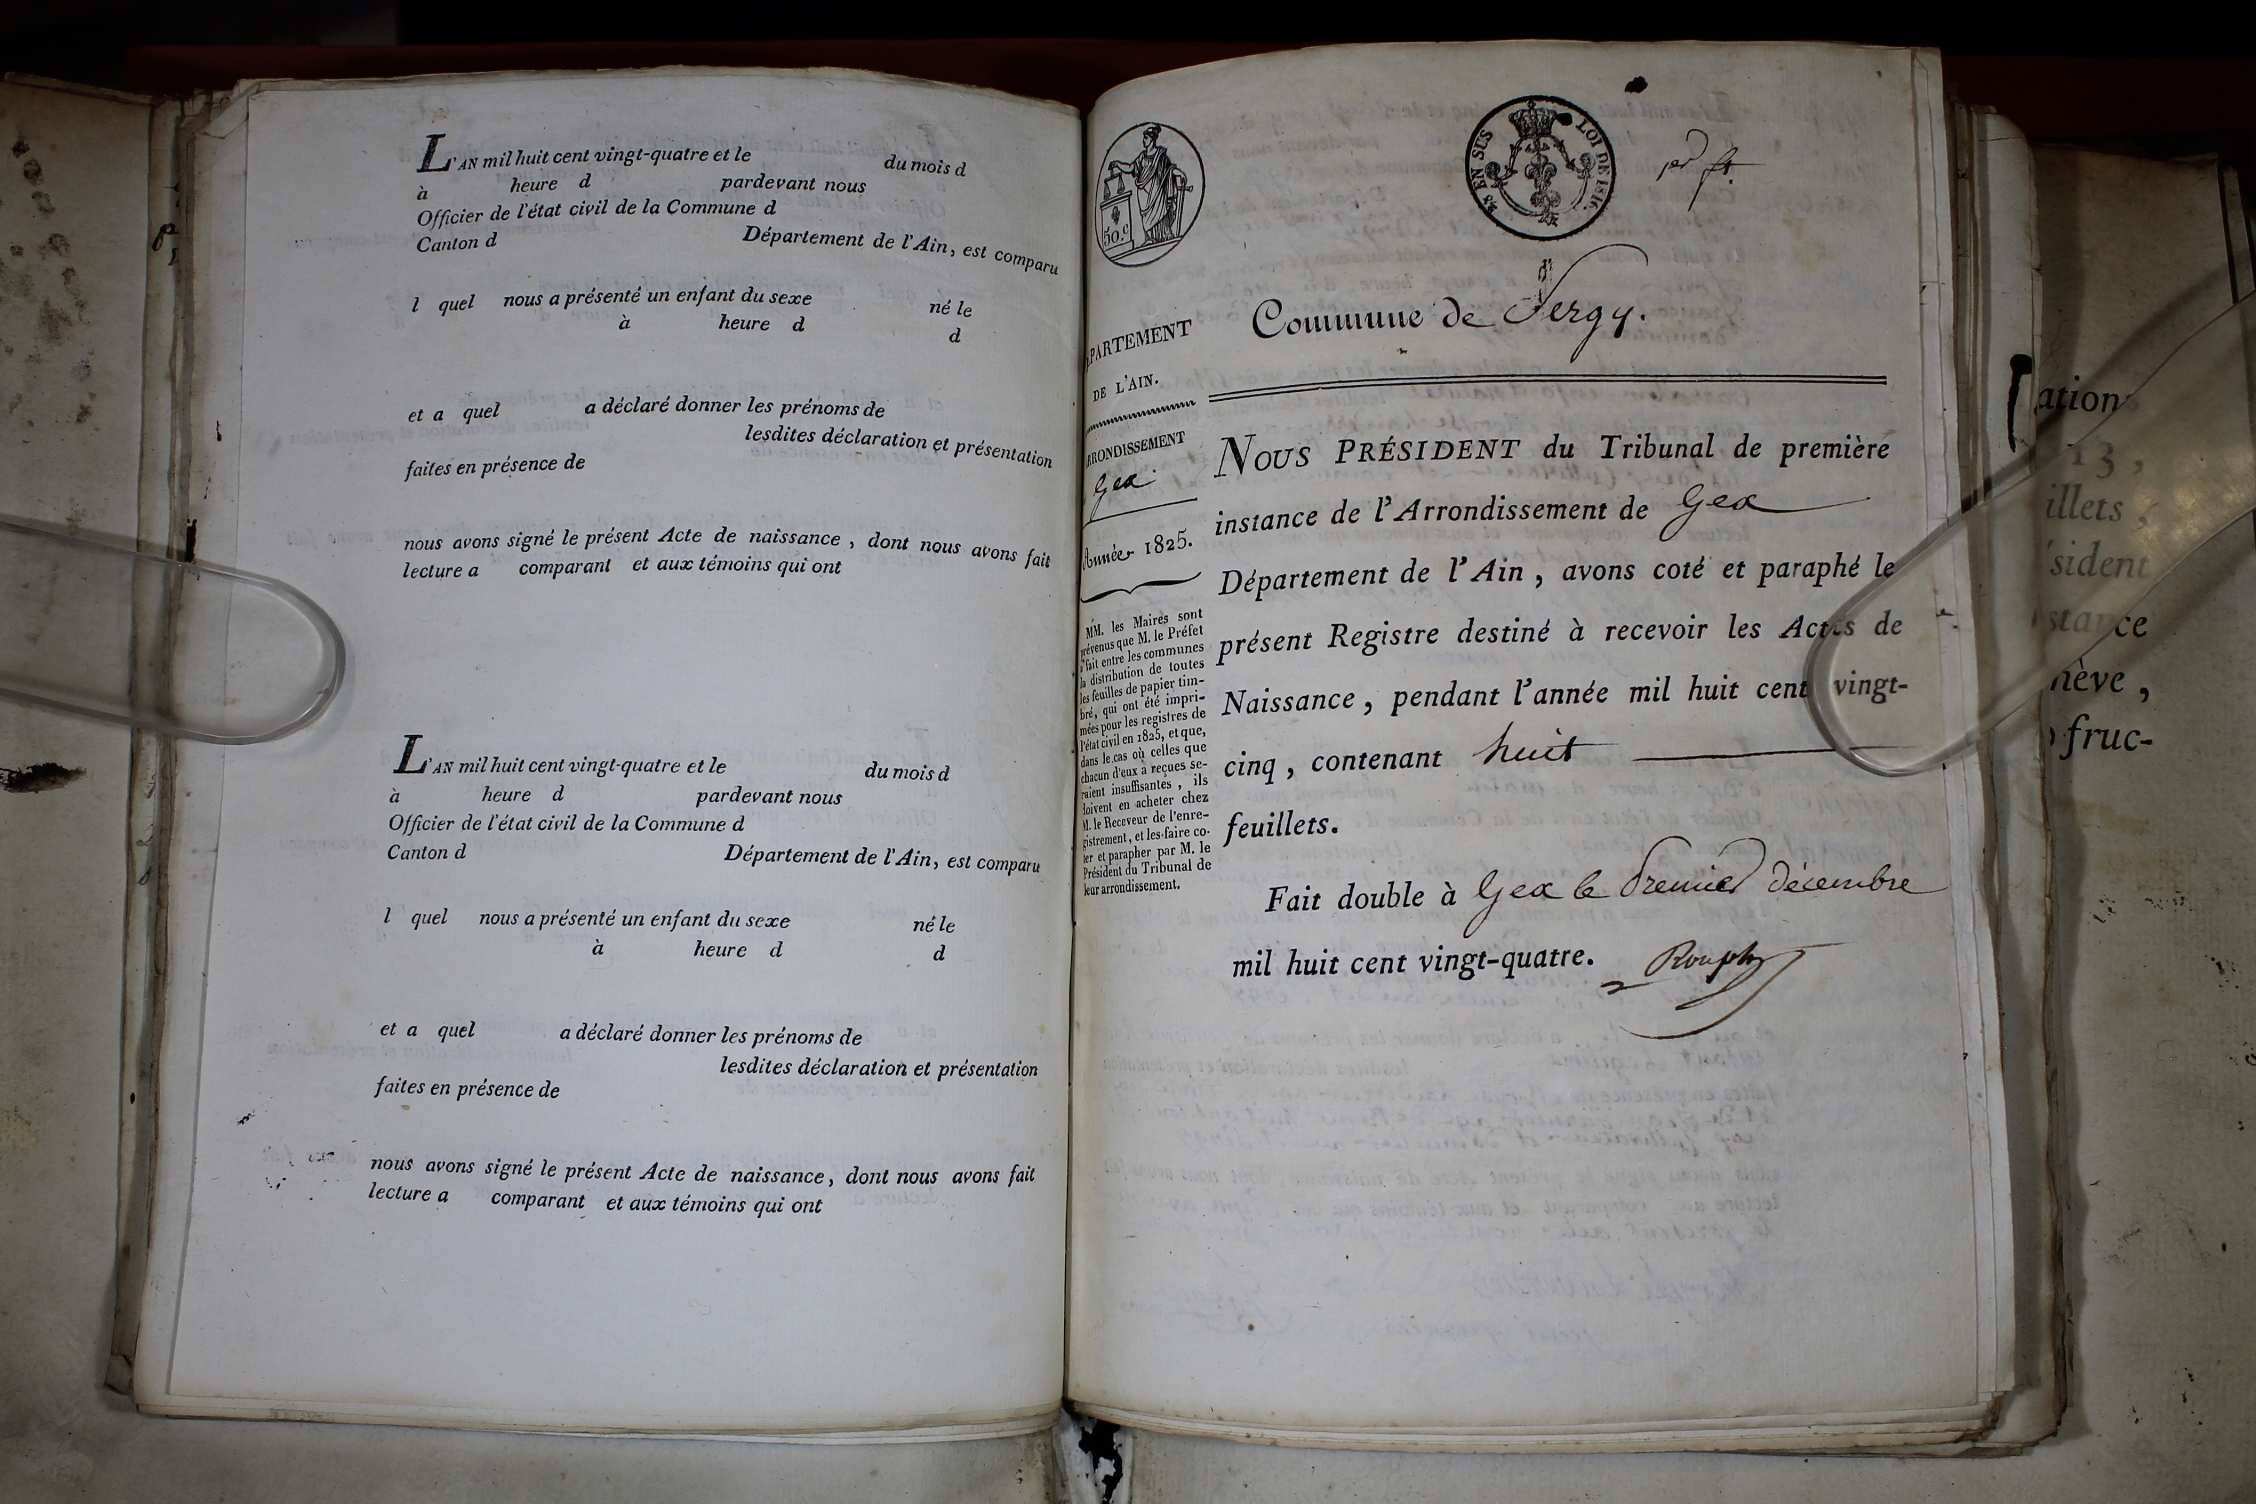 L'AN mil huit cent vingt-quatre et le du mois d
à heure d pardevant nous
Officier de l'état civil de la Commune d
Canton d Département de l'Ain, est comparu
l quel nous a présenté un enfant du sexe né le
à heure d d
et a quel a déclaré donner les prénoms de
lesdites déclaration et présentation
faites en présence de
nous avons signé le présent Acte de naissance, dont nous avons fait
lecture a comparant et aux témoins qui ont
L'AN mil huit cent vingt-quatre et le du mois d
à heure d pardevant nous
Officier de l'état civil de la Commune d
Canton d Département de l'Ain, est comparu
l quel nous a présenté un enfant du sexe né le
à heure d d
et a quel a déclaré donner les prénoms de
lesdites déclaration et présentation
faites en présence de
nous avons signé le présent Acte de naissance, dont nous avons fait
lecture a comparant et aux témoins qui ont
50.c
EN SUS LOI DE 1816.
Commune de Sergy.
PARTEMENT
DE L'AIN.
RRONDISSEMENT
Gex
Année 1825.
MM. les Maires sont
prévenus que M. le Préfet
a fait entre les communes
la distribution de toutes
les feuilles de papier tim-
bré, qui ont été impri-
mées pour les registres de
l'état civil en 1825, et que,
dans le cas où celles que
chacun d'eux a reçues se-
raient insuffisantes, ils
doivent en acheter chez
M. le Receveur de l'enre-
gistrement, et les faire co-
ter et parapher par M. le
Président du Tribunal de
leur arrondissement.
NOUS PRÉSIDENT du Tribunal de première
instance de l'Arrondissement de Gex
Département de l'Ain, avons coté et paraphé le
présent Registre destiné à recevoir les Actes de
Naissance, pendant l'année mil huit cent vingt-
cinq, contenant huit
feuillets.
Fait double à Gex le Premier décembre
mil huit cent vingt-quatre.
ation
13,
illets,
sident
stance
nève,
fruc-